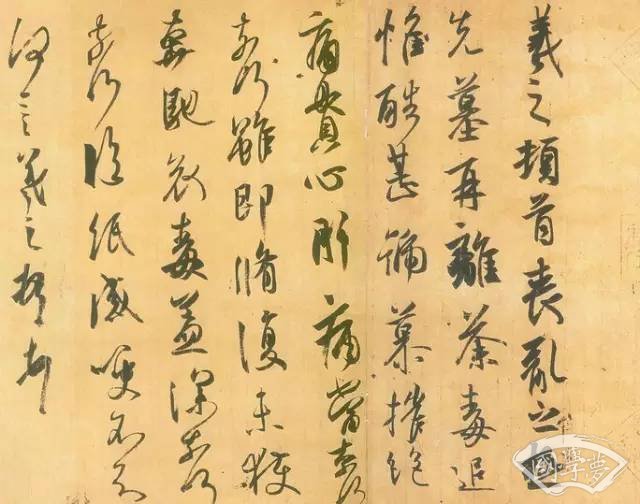 羲之頓首喪亂之極
先墓再離荼毒追
惟酷甚號慕摧絕
痛貫心肝痛當奈何
奈何雖即脩復未獲
奔馳哀毒益深奈何
奈何臨紙感哽不知
何言羲之頓首頓首
國學夢